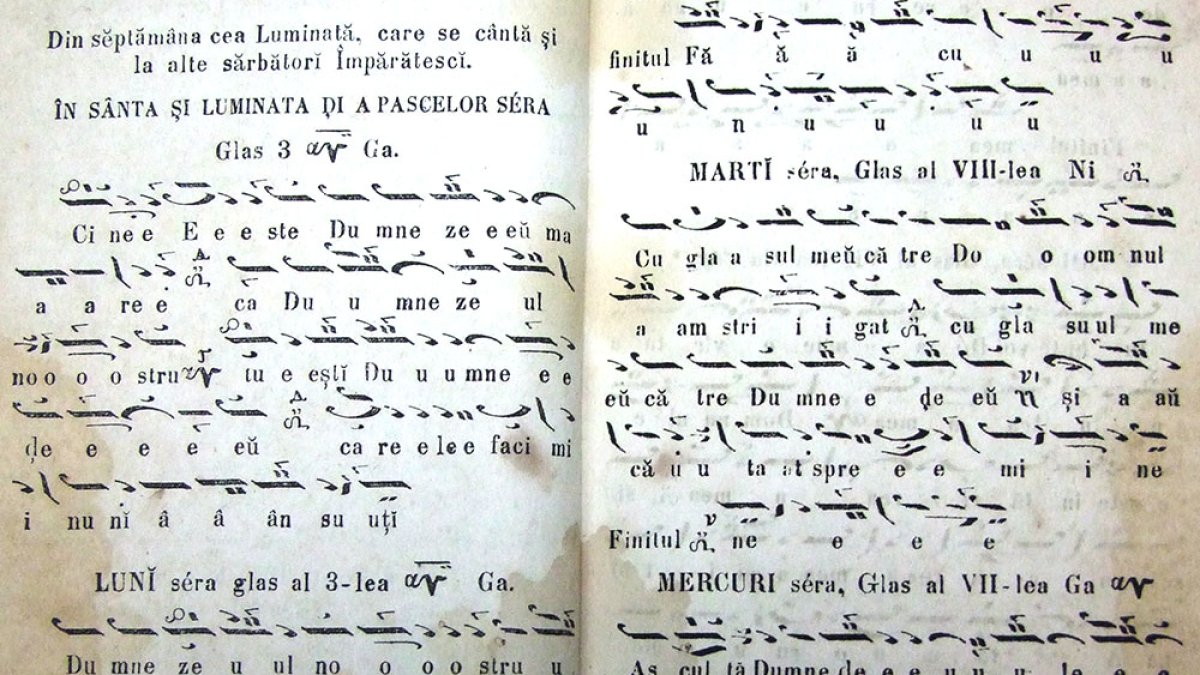 Din sĕptămâna cea Luminată, care se cântă și
la alte sărbătorĭ Împărătescĭ.
ÎN SÂNTA ȘI LUMINATA ḐI A PASCELOR SÉRA
Glas 3 Ga.
Ci ne e E e e ste Du mne ze e eŭ ma
a a re e ca Du u mne ze ul
no o o o stru tu e eștĭ Du u u mne e e
ḑe e e e eŭ ca re e le e faci mi
i nu nĭ â â ân su uțĭ
LUNĬ séra glas al 3-lea Ga.
Du mne ze u ul no o o o stru u
finitul Fă ă ă cu u u u
u n u u u u
MARTĬ séra, Glas al VIII-lea Ni
Cu gla a sul meŭ că tre Do o om nul
a am stri i i gat cu gla su ul me
eŭ că tre Du mne e ḑe eŭ și a aŭ
că u u ta at spre e e mi i ne
Finitul ne e e e
MERCURI séra, Glas al VII-lea Ga
As cul tă Dumne ḑe e e u u u la e e